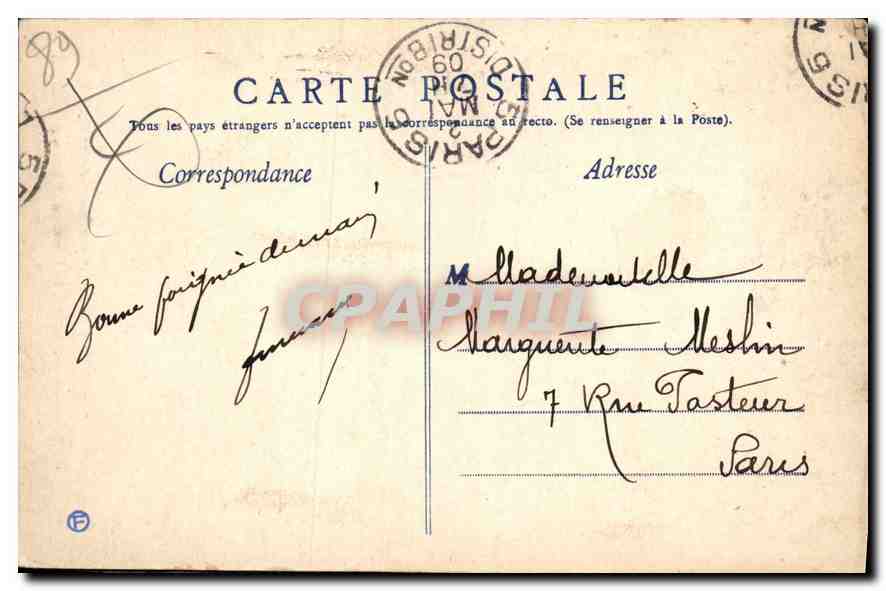 89
CARTE POSTALE
Tous les pays étrangers n'acceptent pas la correspondance au recto. (Se renseigner à la Poste).
Correspondance
Adresse
PARIS
DISTRIBON
MAI
09
Bonne poignée de main
M Mademoiselle
Marguerite Meslin
7 Rue Pasteur
Paris
CPAPHIL
F